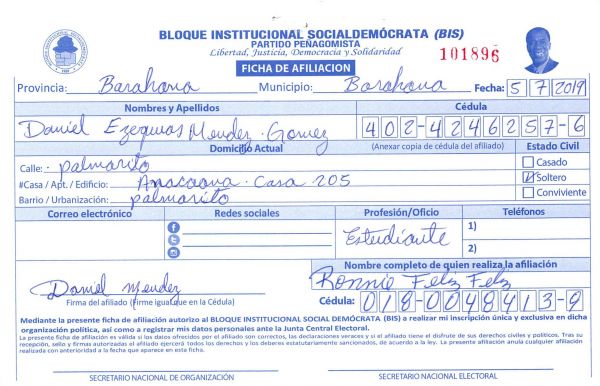 BLOQUE INSTITUCIONAL SOCIALDEMÓCRATA (BIS)
PARTIDO PEÑAGOMISTA
Libertad, Justicia, Democracia y Solidaridad
101896
FICHA DE AFILIACION
Provincia: Barahona Municipio: Barahona Fecha: 5 7 2019
Nombres y Apellidos Cédula
Daniel Mendez Gomez 402-4246257-6
Domicilio Actual (Anexar copia de cédula del afiliado) Estado Civil
Calle: palmarito Casado
#Casa / Apt. / Edificio: Anacaona. Casa 205 Soltero
Barrio / Urbanización: palmarito Conviviente
Correo electrónico Redes sociales Profesión/Oficio Teléfonos
Estudiante 1)
2)
Nombre completo de quien realiza la afiliación
Daniel Mendez Ronnie Feliz Feliz
Firma del afiliado (Firme igual que en la Cédula) Cédula: 018-0048413-9
Mediante la presente ficha de afiliación autorizo al BLOQUE INSTITUCIONAL SOCIAL DEMÓCRATA (BIS) a realizar mi inscripción única y exclusiva en dicha
organización política, así como a registrar mis datos personales ante la Junta Central Electoral.
La presente ficha de afiliación es válida si los datos ofrecidos por el afiliado son correctos, las declaraciones veraces y si el afiliado tiene el disfrute de sus derechos civiles y políticos. Tras su
recepción, sello y firmas autorizadas el afiliado ejercerá todos los derechos y los deberes estatutariamente sancionados, de acuerdo a la ley. La presente afiliación anula cualquier afiliación
realizada con anterioridad a la fecha que aparece en esta ficha.
SECRETARIO NACIONAL DE ORGANIZACIÓN SECRETARIO NACIONAL ELECTORAL